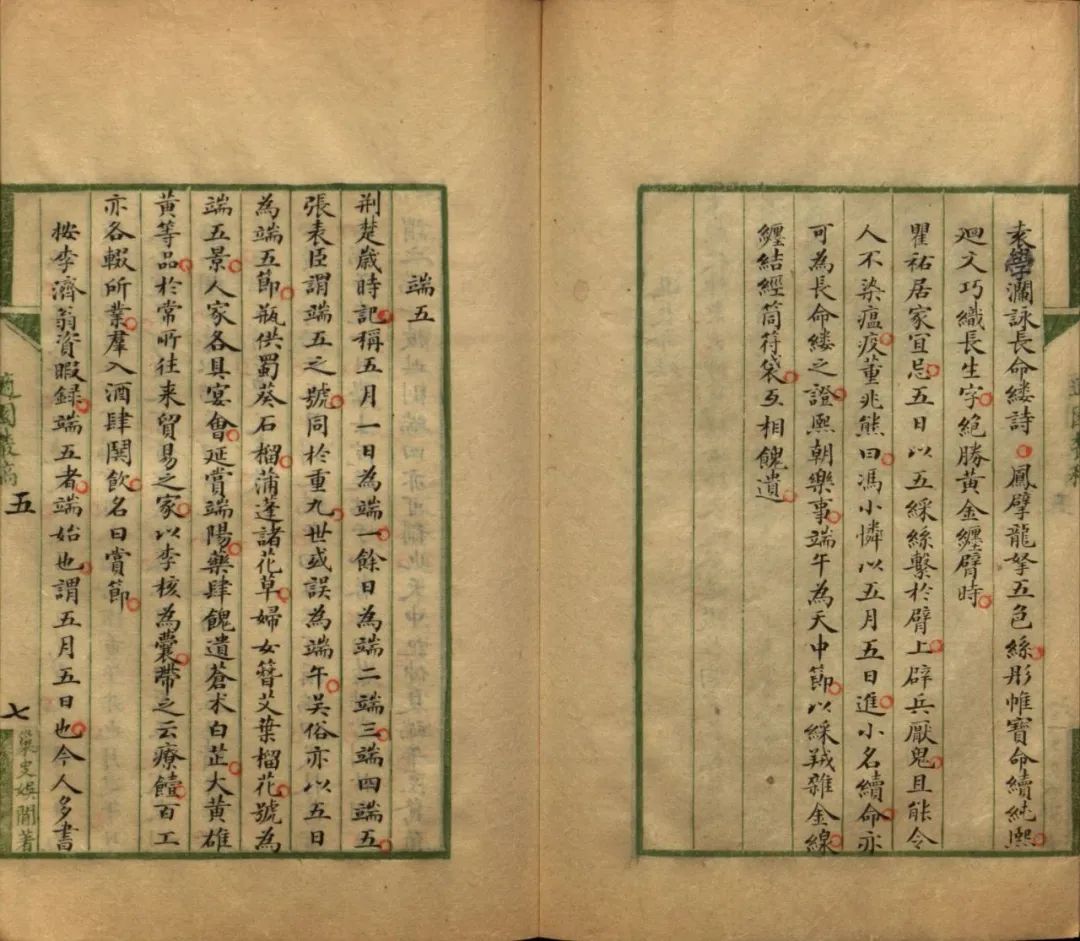 袁學瀾詠長命縷詩鳳擘龍拏五色絲彤帷寶命續純熙
廻文巧織長生字絕勝黃金纏臂時
瞿祐居家宜忌五日以五綵絲繫於臂上辟兵厭鬼且能令
人不染瘟疫董兆熊曰馮小憐以五月五日進小名續命亦
可為長命縷之證熙朝樂事端午為天中節以綵羢雜金線
纏結經筒符袋互相餽遺
端五
荆楚歲時記稱五月一日為端一餘日為端二端三端四端五
張表臣謂端五之號同於重九世或誤為端午吳俗亦以五日
為端五節瓶供蜀葵石榴蒲蓬諸花草婦女簪艾葉榴花號為
端五景人家各具宴會延賞端陽藥肆餽遺蒼术白芷大黃雄
黃等品於常所往来貿易之家以李核為囊帶之云療饐百工
亦各輟所業羣入酒肆鬨飲名曰賞節
按李濟翁資暇録端五者端始也謂五月五日也今人多書
五
七
槳叟娛閒著